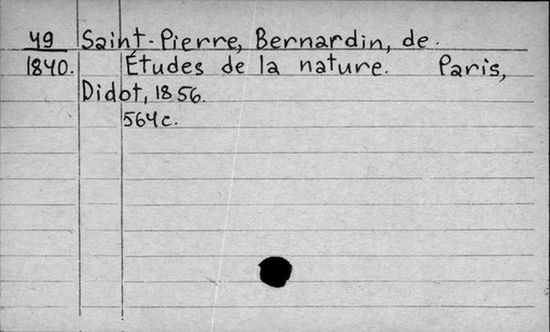 49 Saint-Pierre, Bernardin, de.
1840. Études de la nature. Paris,
Didot, 1856.
564c.